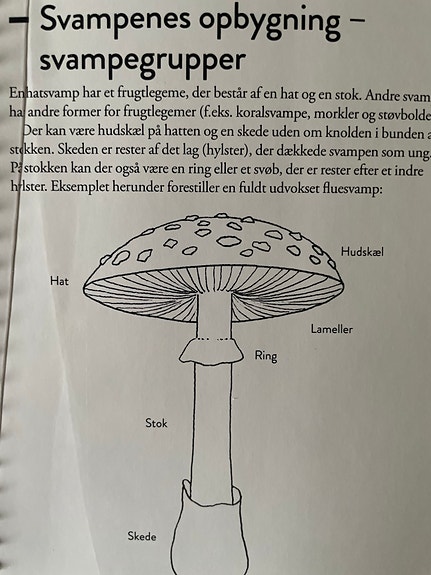 Svampenes opbygning –
svampegrupper
En hatsvamp har et frugtlegeme, der består af en hat og en stok. Andre svam
har andre former for frugtlegemer (f.eks. koralsvampe, morkler og støvbolde
Der kan være hudskæl på hatten og en skede uden om knolden i bunden a
stokken. Skeden er rester af det lag (hylster), der dækkede svampen som ung.
På stokken kan der også være en ring eller et svøb, der er rester efter et indre
hylster. Eksemplet herunder forestiller en fuldt udvokset fluesvamp:
Hudskæl
Hat
Lameller
Ring
Stok
Skede